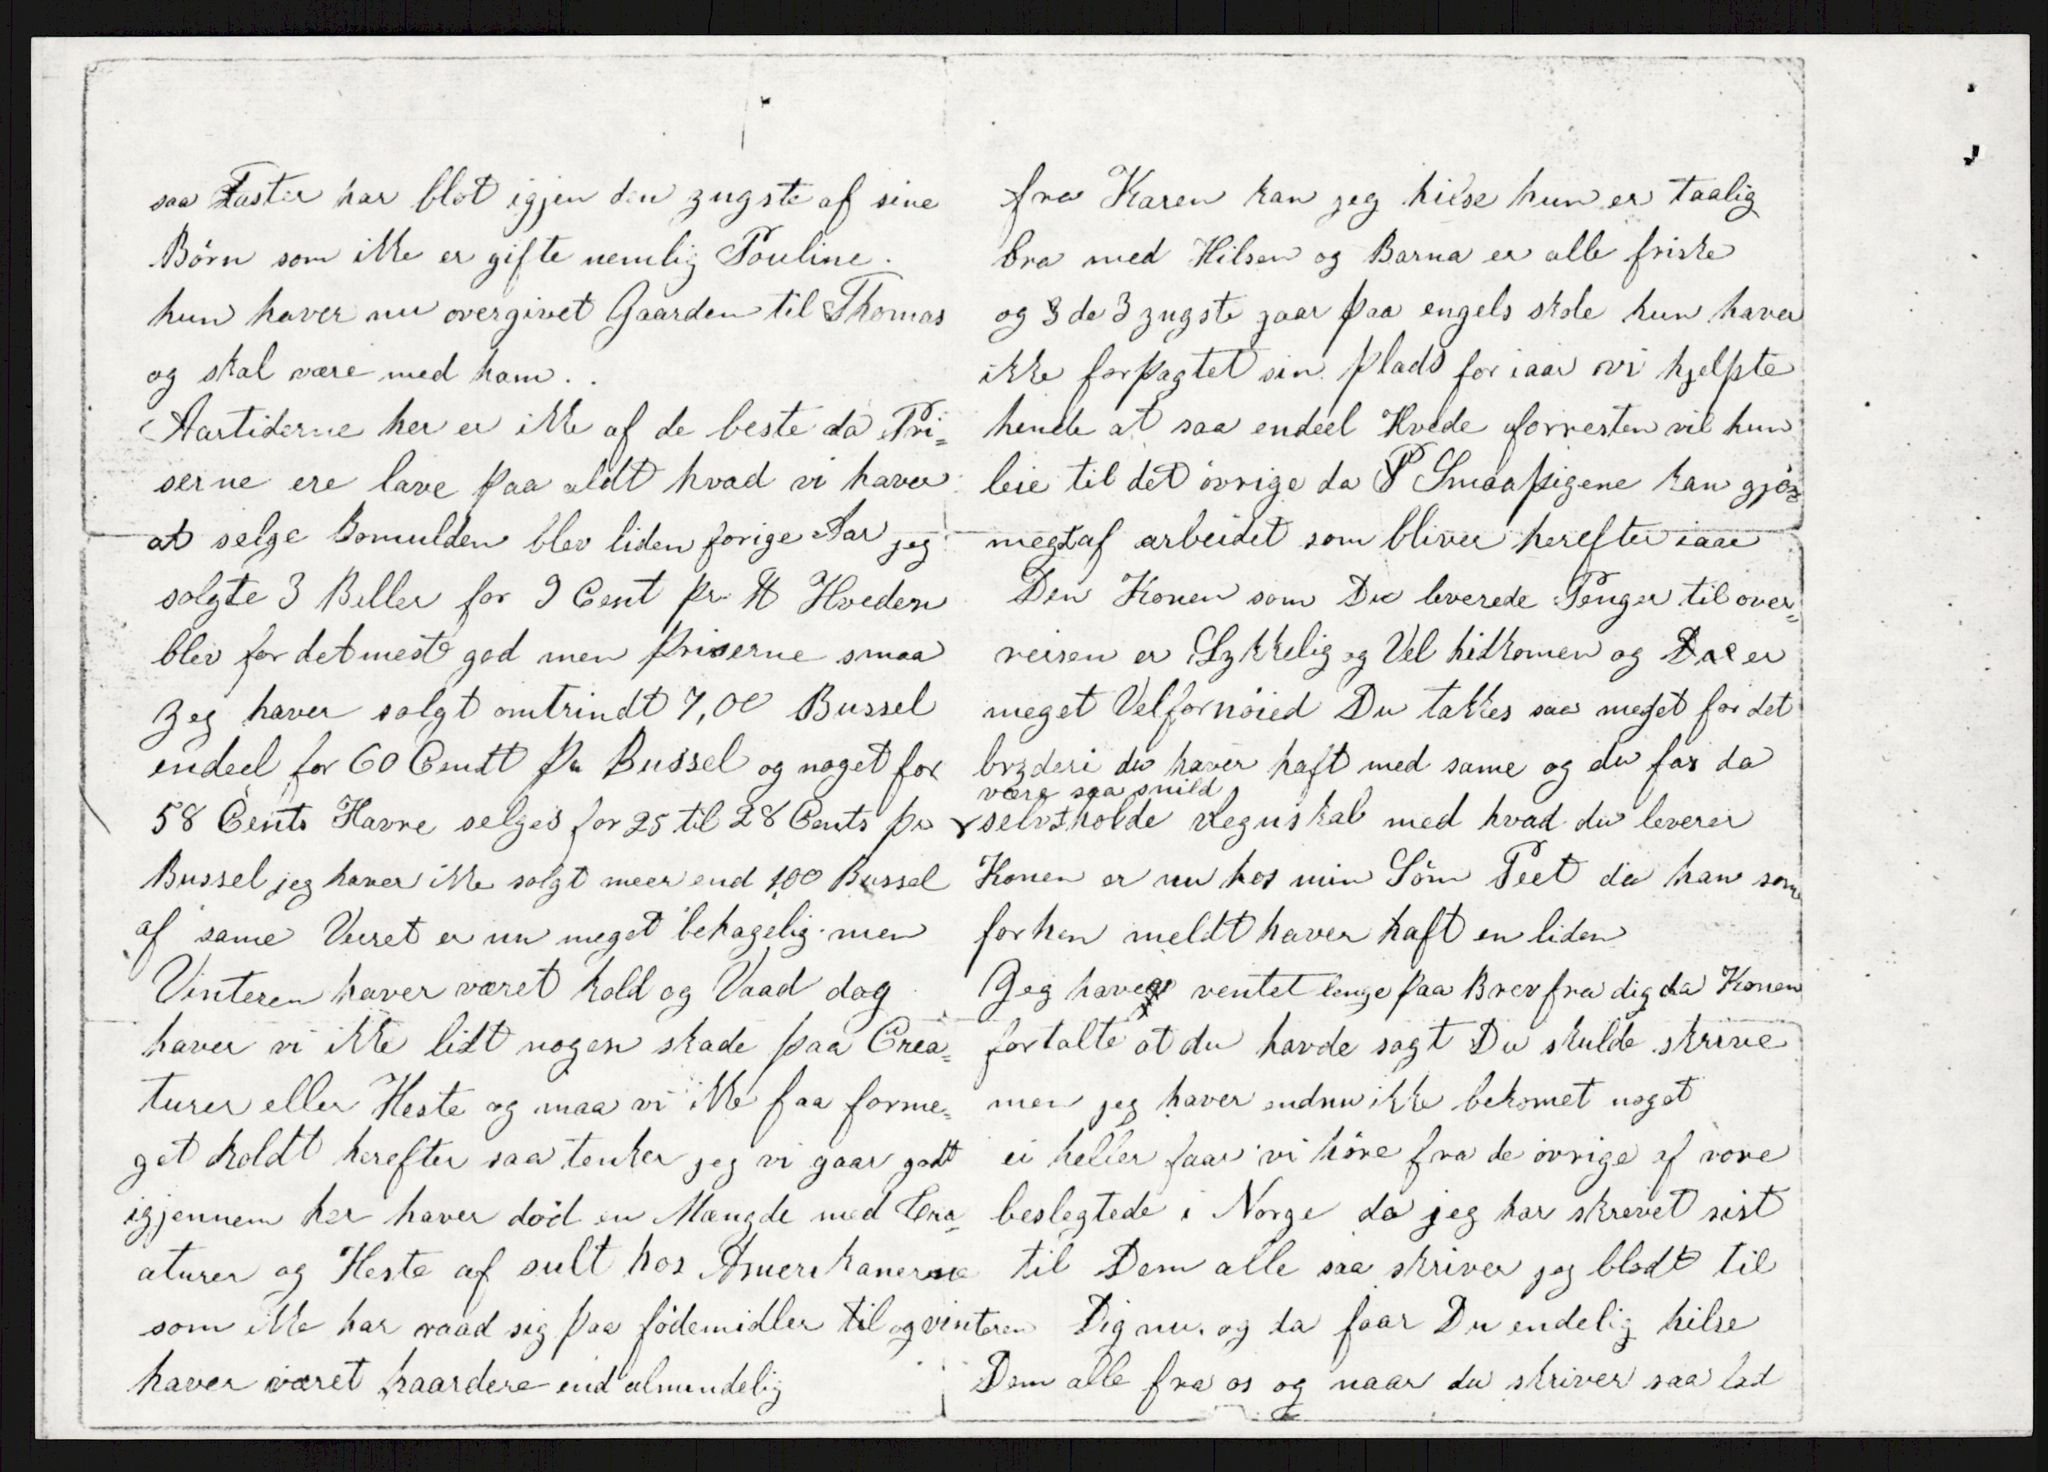 saa Faster har blot igjen den yngste af sine
Börn som ikke er gifte nemlig Pouline.
hun haver nu overgivet Gaarden til Thomas
og skal være med ham..
Aartiderne her er ikke af de beste da Pri=
serne ere lave paa aldt hvad vi haver
at selge Bomulden blev liden forige Aar jeg
solgte 3 Beller for 9 Cent pr ℔ Hveden
blev for det meste god men priserne smaa
Jeg haver solgt omtrindt 7,00 Bussel
endeel for 60 Centt pr Bussel og noget for
58 Cents Havre selges for 25 til 28 Cents pr
Bussel jeg haver ikke solgt meer end 100 Bussel
af same Veiret er nu meget behagelig men
Vinteren haver været kold og Vaad dog
haver vi ikke lidt nogen skade paa Crea=
turer eller Heste og maa vi ikke faa forme=
get koldt herefter saa tenker jeg vi gaar godt
igjennem her haver död en Mængde med Cre=
aturer og Heste af sult hos Amerikanerne
som ikke har raad sig paa födemidler til og vinteren
haver været haardere end almindelig
fra Karen kan jeg hilse hun er taalig
bra med Hilsen og Barna er alle friske
og 3 de 3 yngste gaar paa engels skole hun haver
ikke forpagtet sin plads for iaar vi hjelpte
hende at saa endeel Hvede forresten vil hun
leie til det övrige da P Smaapigene kan gjör
megt af arbeidet som bliver herefter iaar
Den Konen som Du leverede Penger til over=
reisen er Lykkelig og Vel hidkomen og er
meget Velfornöied Du takkes saa meget for det
bryderi du haver haft med same og du far da
være saa snild
selv holde regnskab med hvad du leverer
Konen er nu hos min Sön Peet da han som
forhen meldt haver haft en liden
Jeg haver ventet lenge paa Brev fra dig da Konen
fortalte at du havde sagt Du skulde skrive
men jeg haver endnu ikke bekomet noget
ei heller faar vi höre fra de övrige af vore
beslegtede i Norge da jeg har skrevet sist
til Dem alle saa skriver jeg blodt til
Dig nu. og da faar Du endelig hilse
Dem alle fra os og naar du skriver saa lad